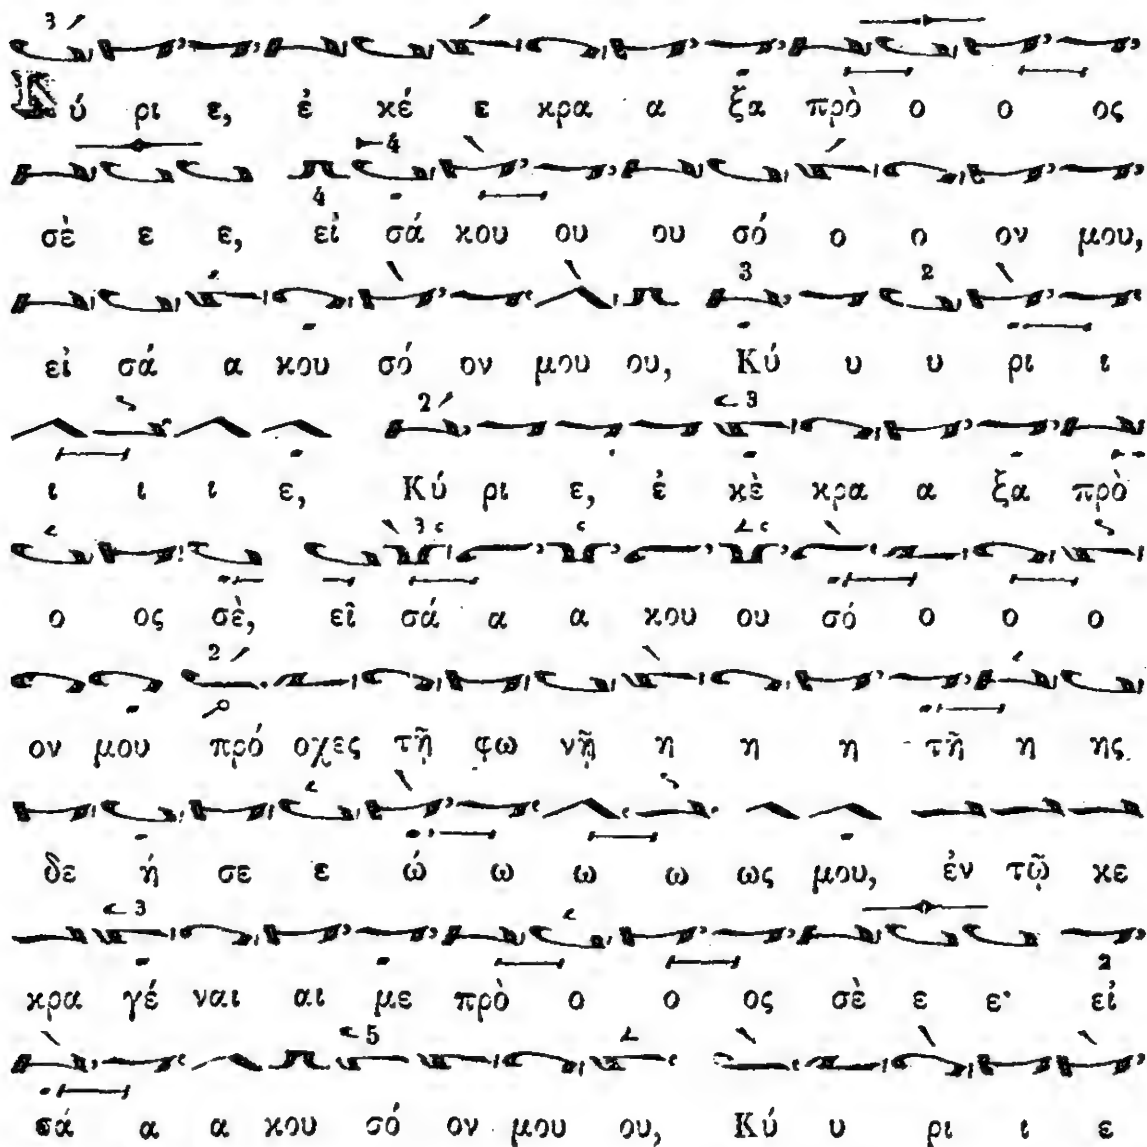 Κύ ρι ε, ἐ κέ ε κρα α ξα πρὸ ο ο ος
σὲ ε ε, εἰ σά κου ου ου σό ο ο ον μου,
εἰ σά α κου σό ον μου ου, Κύ υ υ ρι ι
ι ι ι ε, Κύ ρι ε, ἐ κὲ κρα α ξα πρὸ
ο ος σὲ, εἰ σά α α κου ου σό ο ο ο
ον μου πρό οχες τῇ φω νῇ η η η τῆ η ης
δε ή σε ε ώ ω ω ω ως μου, ἐν τῷ κε
κρα γέ ναι αι με πρὸ ο ο ος σὲ ε ε· εἰ
σά α α κου σό ον μου ου, Κύ υ ρι ι ε